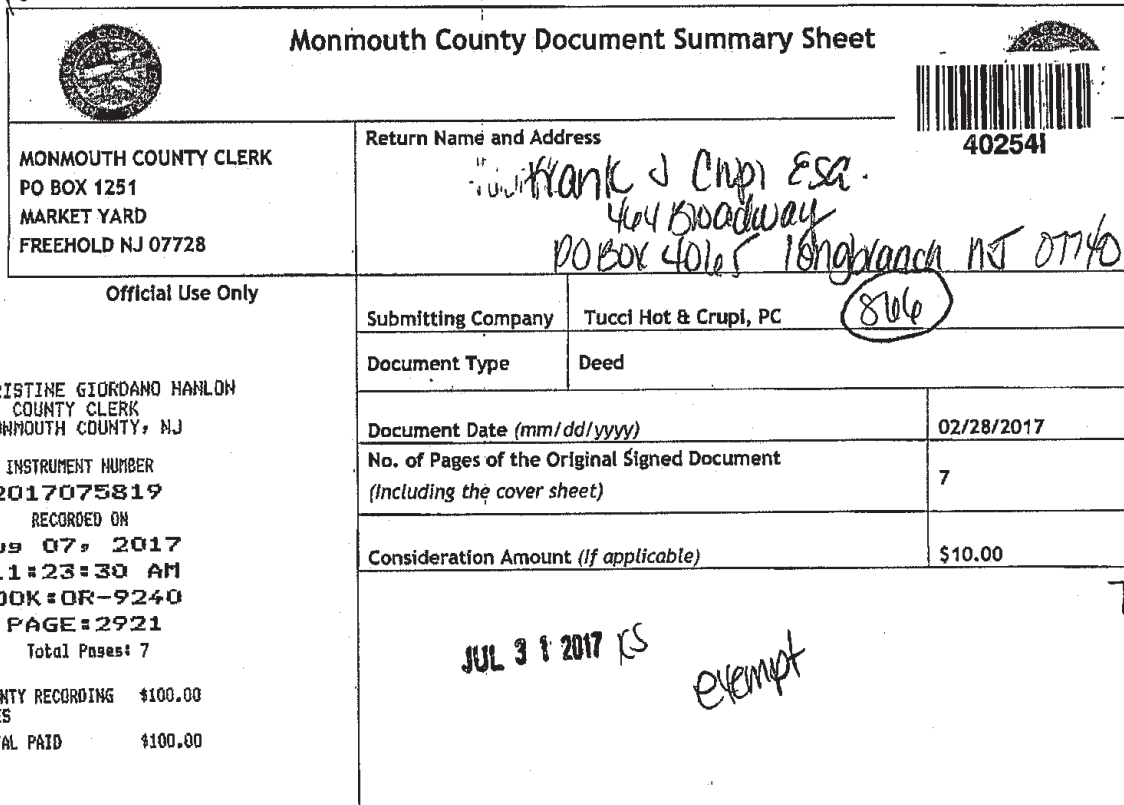 Monmouth County Document Summary Sheet
40254
MONMOUTH COUNTY CLERK
PO BOX 1251
MARKET YARD
FREEHOLD NJ 07728
Return Name and Address
Frank J Crupi Esq.
464 Broadway
PO BOX 4065 longbranch NJ 07740
Official Use Only
Submitting Company Tucci Hot & Crupi, PC 866
Document Type Deed
RISTINE GIORDANO HANLON
COUNTY CLERK
ONMOUTH COUNTY, NJ
INSTRUMENT NUMBER
2017075819
RECORDED ON
ug 07, 2017
11:23:30 AM
OOK:OR-9240
PAGE:2921
Total Pages: 7
NTY RECORDING $100.00
ES
AL PAID $100.00
Document Date (mm/dd/yyyy) 02/28/2017
No. of Pages of the Original Signed Document
(Including the cover sheet) 7
Consideration Amount (If applicable) $10.00
JUL 31 2017 KS
exempt